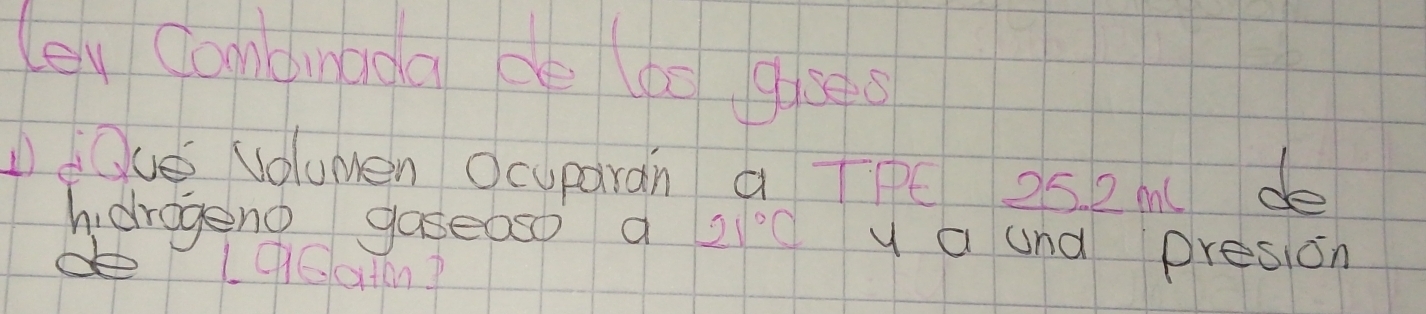 Ley Combinada de los gases
1) ¿Qué volumen Ocuparán a TPE 25.2 ml de
hidrógeno gaseoso a 21°C y a una presión
de 1.96atm?